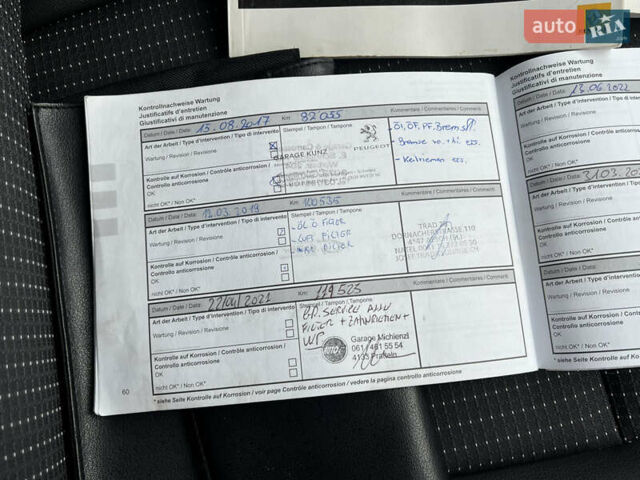 auto RIA
Kontrollnachweise Wartung
Justificatifs d'entretien
Giustificativi di manutenzione
Datum / Date / Data: 15.08.2017 Km 92055
Art der Arbeit / Type d'intervention / Tipo di intervento
Stempel / Tampon / Tampone
Kommentare / Commentaires / Commenti
Wartung / Revision / Revisione
GARAGE KUNZ
PEUGEOT
Öl, ÖF, PF, Bremsfl.
- Bremse vo. + hi. ers.
- Keilriemen ers.
Kontrolle auf Korrosion / Contrôle anticorrosion /
Controllo anticorrosione
OK
nicht OK* / Non OK*
Datum / Date / Data: 12.03.2019 Km: 100535
Art der Arbeit / Type d'intervention / Tipo di intervento
Stempel / Tampon / Tampone
Kommentare / Commentaires / Commenti
Wartung / Revision / Revisione
ÖL Ö FILTER
LUFT FILTER
FILTER
DORNACHERSTRASSE 110
Kontrolle auf Korrosion / Contrôle anticorrosion /
Controllo anticorrosione
OK
nicht OK* / Non OK*
Datum / Date / Data: 2021 Km: 119525
Art der Arbeit / Type d'intervention / Tipo di intervento
Stempel / Tampon / Tampone
Kommentare / Commentaires / Commenti
Wartung / Revision / Revisione
SERVICE
FILTER + ZAHNRIEMEN +
WP
Garage Michienzi
061 / 461 55 54
4133 Pratteln
Kontrolle auf Korrosion / Contrôle anticorrosion /
Controllo anticorrosione
OK
nicht OK* / Non OK*
* siehe Seite Kontrolle auf Korrosion / voir page Contrôle anticorrosion / vedere la pagina controllo anticorrosione
60
Kontrollnachweise Wartung
Justificatifs d'entretien
Giustificativi di manutenzione
Datum / Date / Data: 13.06.2022
Art der Arbeit / Type d'inter
Wartung / Revision / Revisione
Kontrolle auf Korrosion / Co
Controllo anticorrosione
OK
nicht OK* / Non OK*
Datum / Date / Data: 31.03.
Art der Arbeit / Type d'inter
Wartung / Revision / Revisione
Kontrolle auf Korrosion / Co
Controllo anticorrosione
OK
nicht OK* / Non OK*
Datum / Date / Data:
Art der Arbeit / Type d'inter
Wartung / Revision / Revisione
Kontrolle auf Korrosion / Co
Controllo anticorrosione
OK
nicht OK* / Non OK*
* siehe Seite Kontrolle auf Ko